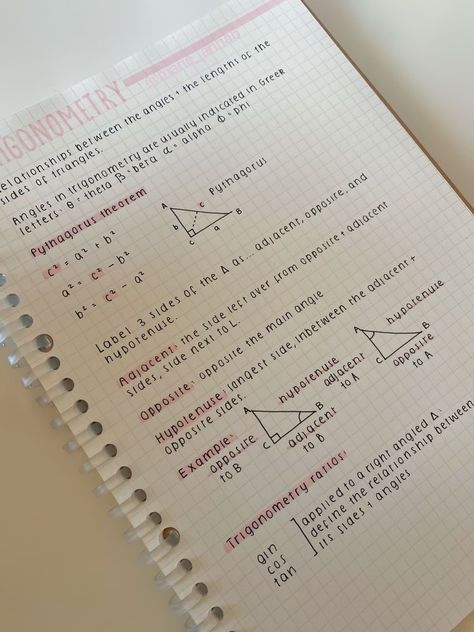 TRIGONOMETRY
relationships between the angles + the lengths of the
sides of triangles.
Angles in trigonometry are usually indicated in Greek
letters. θ = theta β = beta α = alpha Φ = phi
Pythagorus theorem
c² = a² + b²
a² = c² - b²
b² = c² - a²
A c Pythagorus
b a B
C
Label 3 sides of the Δ as... adjacent, opposite, and
hypotenuse.
Adjacent: the side left over from opposite + adjacent
sides, side next to L.
Opposite: opposite the main angle
Hypotenuse: longest side, inbetween the adjacent +
opposite sides.
Example:
opposite
to B
A hypotenuse B
C adjacent
to B
A hypotenuse
B
adjacent
to A
C opposite
to A
Trigonometry ratios:
gin
cos
tan
applied to a right angled Δ.
define the relationship between
its sides + angles